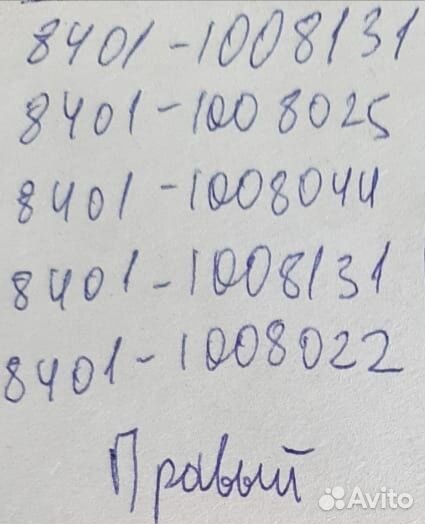 8401-1008131
8401-1008025
8401-1008044
8401-1008131
8401-1008022
Правый
Avito